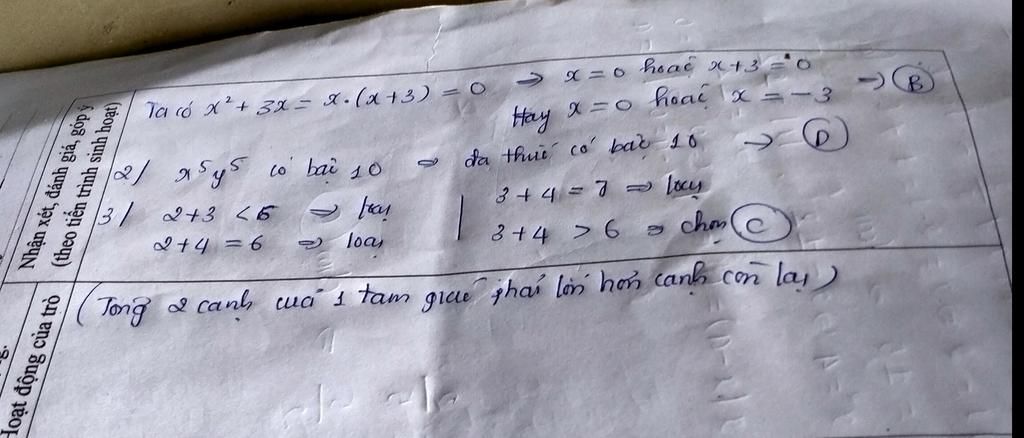 Nhận xét, đánh giá, góp ý
(theo tiến trình sinh hoạt)
Ta có x² + 3x = x.(x+3) = 0 → x = 0 hoặc x+3 = 0
Hay x = 0 hoặc x = -3 → B
2/ x⁵y⁵ có bậc 10 ⇒ đa thức có bậc 10 → D
3/ 2+3 < 6 ⇒ loại | 3+4 = 7 ⇒ loại
2+4 = 6 ⇒ loại | 3+4 > 6 ⇒ chọn C
Hoạt động của trò
(Tổng 2 cạnh của 1 tam giác phải lớn hơn cạnh còn lại)